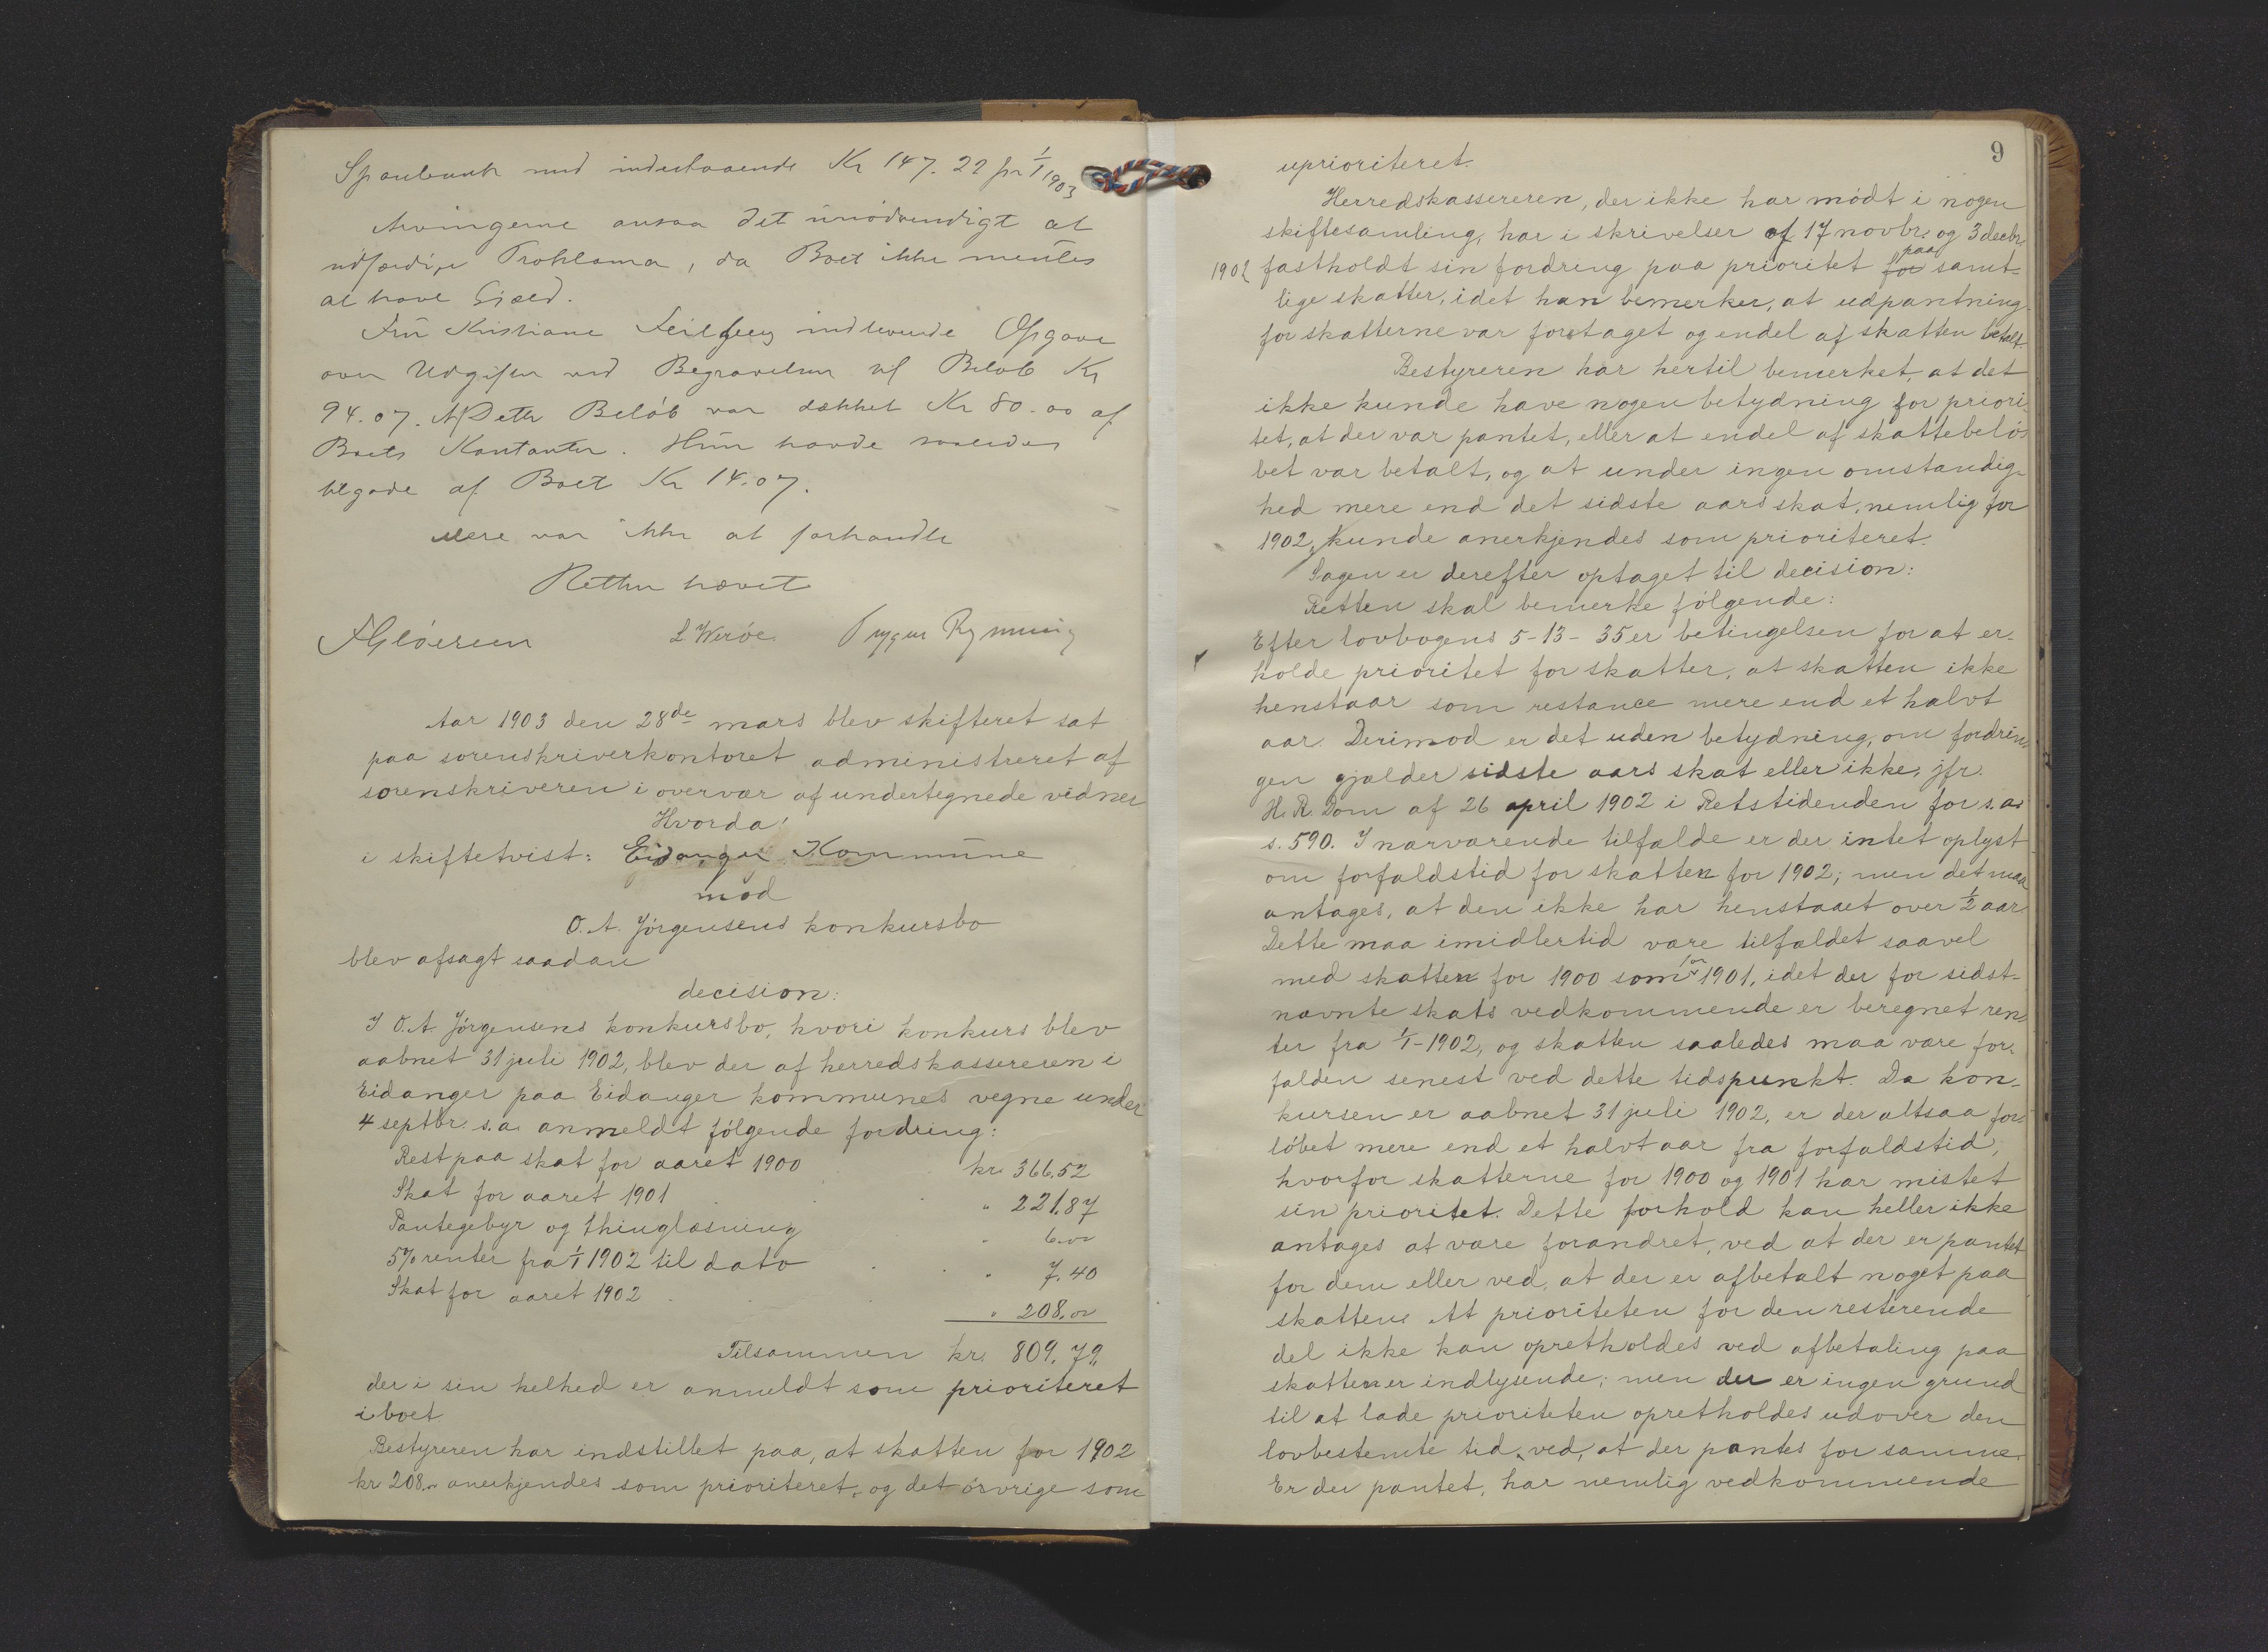 Sparebank med indestaaende Kr 147.22 pr 1/1 1903
Arvingerne ansaa det unødvendigt at
udfærdige Proklama, da Boet ikke mentes
at have Gjæld.
Fru Kristiane indleverede Opgave
over Udgifter ved Begravelsen til Beløb Kr
94.07. Af Dette Beløb var dækket Kr 80.00 af
Boets Kontanter. Hun havde saaledes
tilgode af Boet Kr 14.07.
Mere var ikke at forhandle
Retten hævet
L Werøe. Trygve Rynning
Aar 1903 den 28de mars blev skifteret sat
paa sorenskriverkontoret administreret af
sorenskriveren i overvær af undertegnede vidner
Hvorda!
i skiftetvist: Eidanger Kommune
mod
O. A. Jørgensens konkursbo
blev afsagt saadan
decision:
I O. A. Jørgensens konkursbo, hvori konkurs blev
aabnet 31 juli 1902, blev der af herredskassereren i
Eidanger paa Eidanger kommunes vegne under
4 septbr. s.a. anmeldt følgende fordring:
Rest paa skat for aaret 1900 kr. 366.52
Skat for aaret 1901 " 221.87
Pantegebyr og thinglæsning " 6.00
5% renter fra 1/1 1902 til dato " 7.40
Skat for aaret 1902 " 208.00
Tilsammen kr. 809.79,
der i sin helhed er anmeldt som prioriteret
i boet
Bestyreren har indstillet paa, at skatten for 1902
kr 208.00 anerkjendes som prioriteret, og det øvrige som
9
uprioriteret.
Herredskassereren, der ikke har mødt i nogen
skiftesamling, har i skrivelser af 17 novbr. og 3 decbr.
1902 fastholdt sin fordring paa prioritet for paa samt-
lige skatter, idet han bemerker, at udpantning
for skatterne var foretaget og endel af skatten betalt.
Bestyreren har hertil bemerket, at det
ikke kunde have nogen betydning for priori-
tet, at der var pantet, eller at endel af skattebelø-
bet var betalt, og at under ingen omstændig-
hed mere end det sidste aars skat, nemlig for
1902, kunde anerkjendes som prioriteret.
Sagen er derefter optaget til decision:
Retten skal bemerke følgende:
Efter lovbogens 5-13-35 er betingelsen for at er-
holde prioritet for skatter, at skatten ikke
henstaar som restance mere end et halvt
aar. Derimod er det uden betydning, om fordrin-
gen gjælder sidste aars skat eller ikke, jfr.
H. R. Dom af 26 april 1902 i Retstidenden for s.a.
s. 590. I nærværende tilfælde er der intet oplyst
om forfaldstid for skatten for 1902; men det maa
antages, at den ikke har henstaaet over 1/2 aar.
Dette maa imidlertid være tilfældet saavel
med skatten for 1900 som for 1901, idet der for sidst-
nævnte skats vedkommende er beregnet ren-
ter fra 1/1-1902, og skatten saaledes maa være for-
falden senest ved dette tidspunkt. Da kon-
kursen er aabnet 31 juli 1902, er der altsaa for-
løbet mere end et halvt aar fra forfaldstid,
hvorfor skatterne for 1900 og 1901 har mistet
sin prioritet. Dette forhold kan heller ikke
antages at være forandret, ved at der er pantet
for dem eller ved, at der er afbetalt noget paa
skatten. At prioriteten for den resterende
del ikke kan opretholdes ved afbetaling paa
skatten er indlysende; men der er ingen grund
til at lade prioriteten opretholdes udover den
lovbestemte tid, ved, at der pantes for samme.
Er der pantet, har nemlig vedkommende